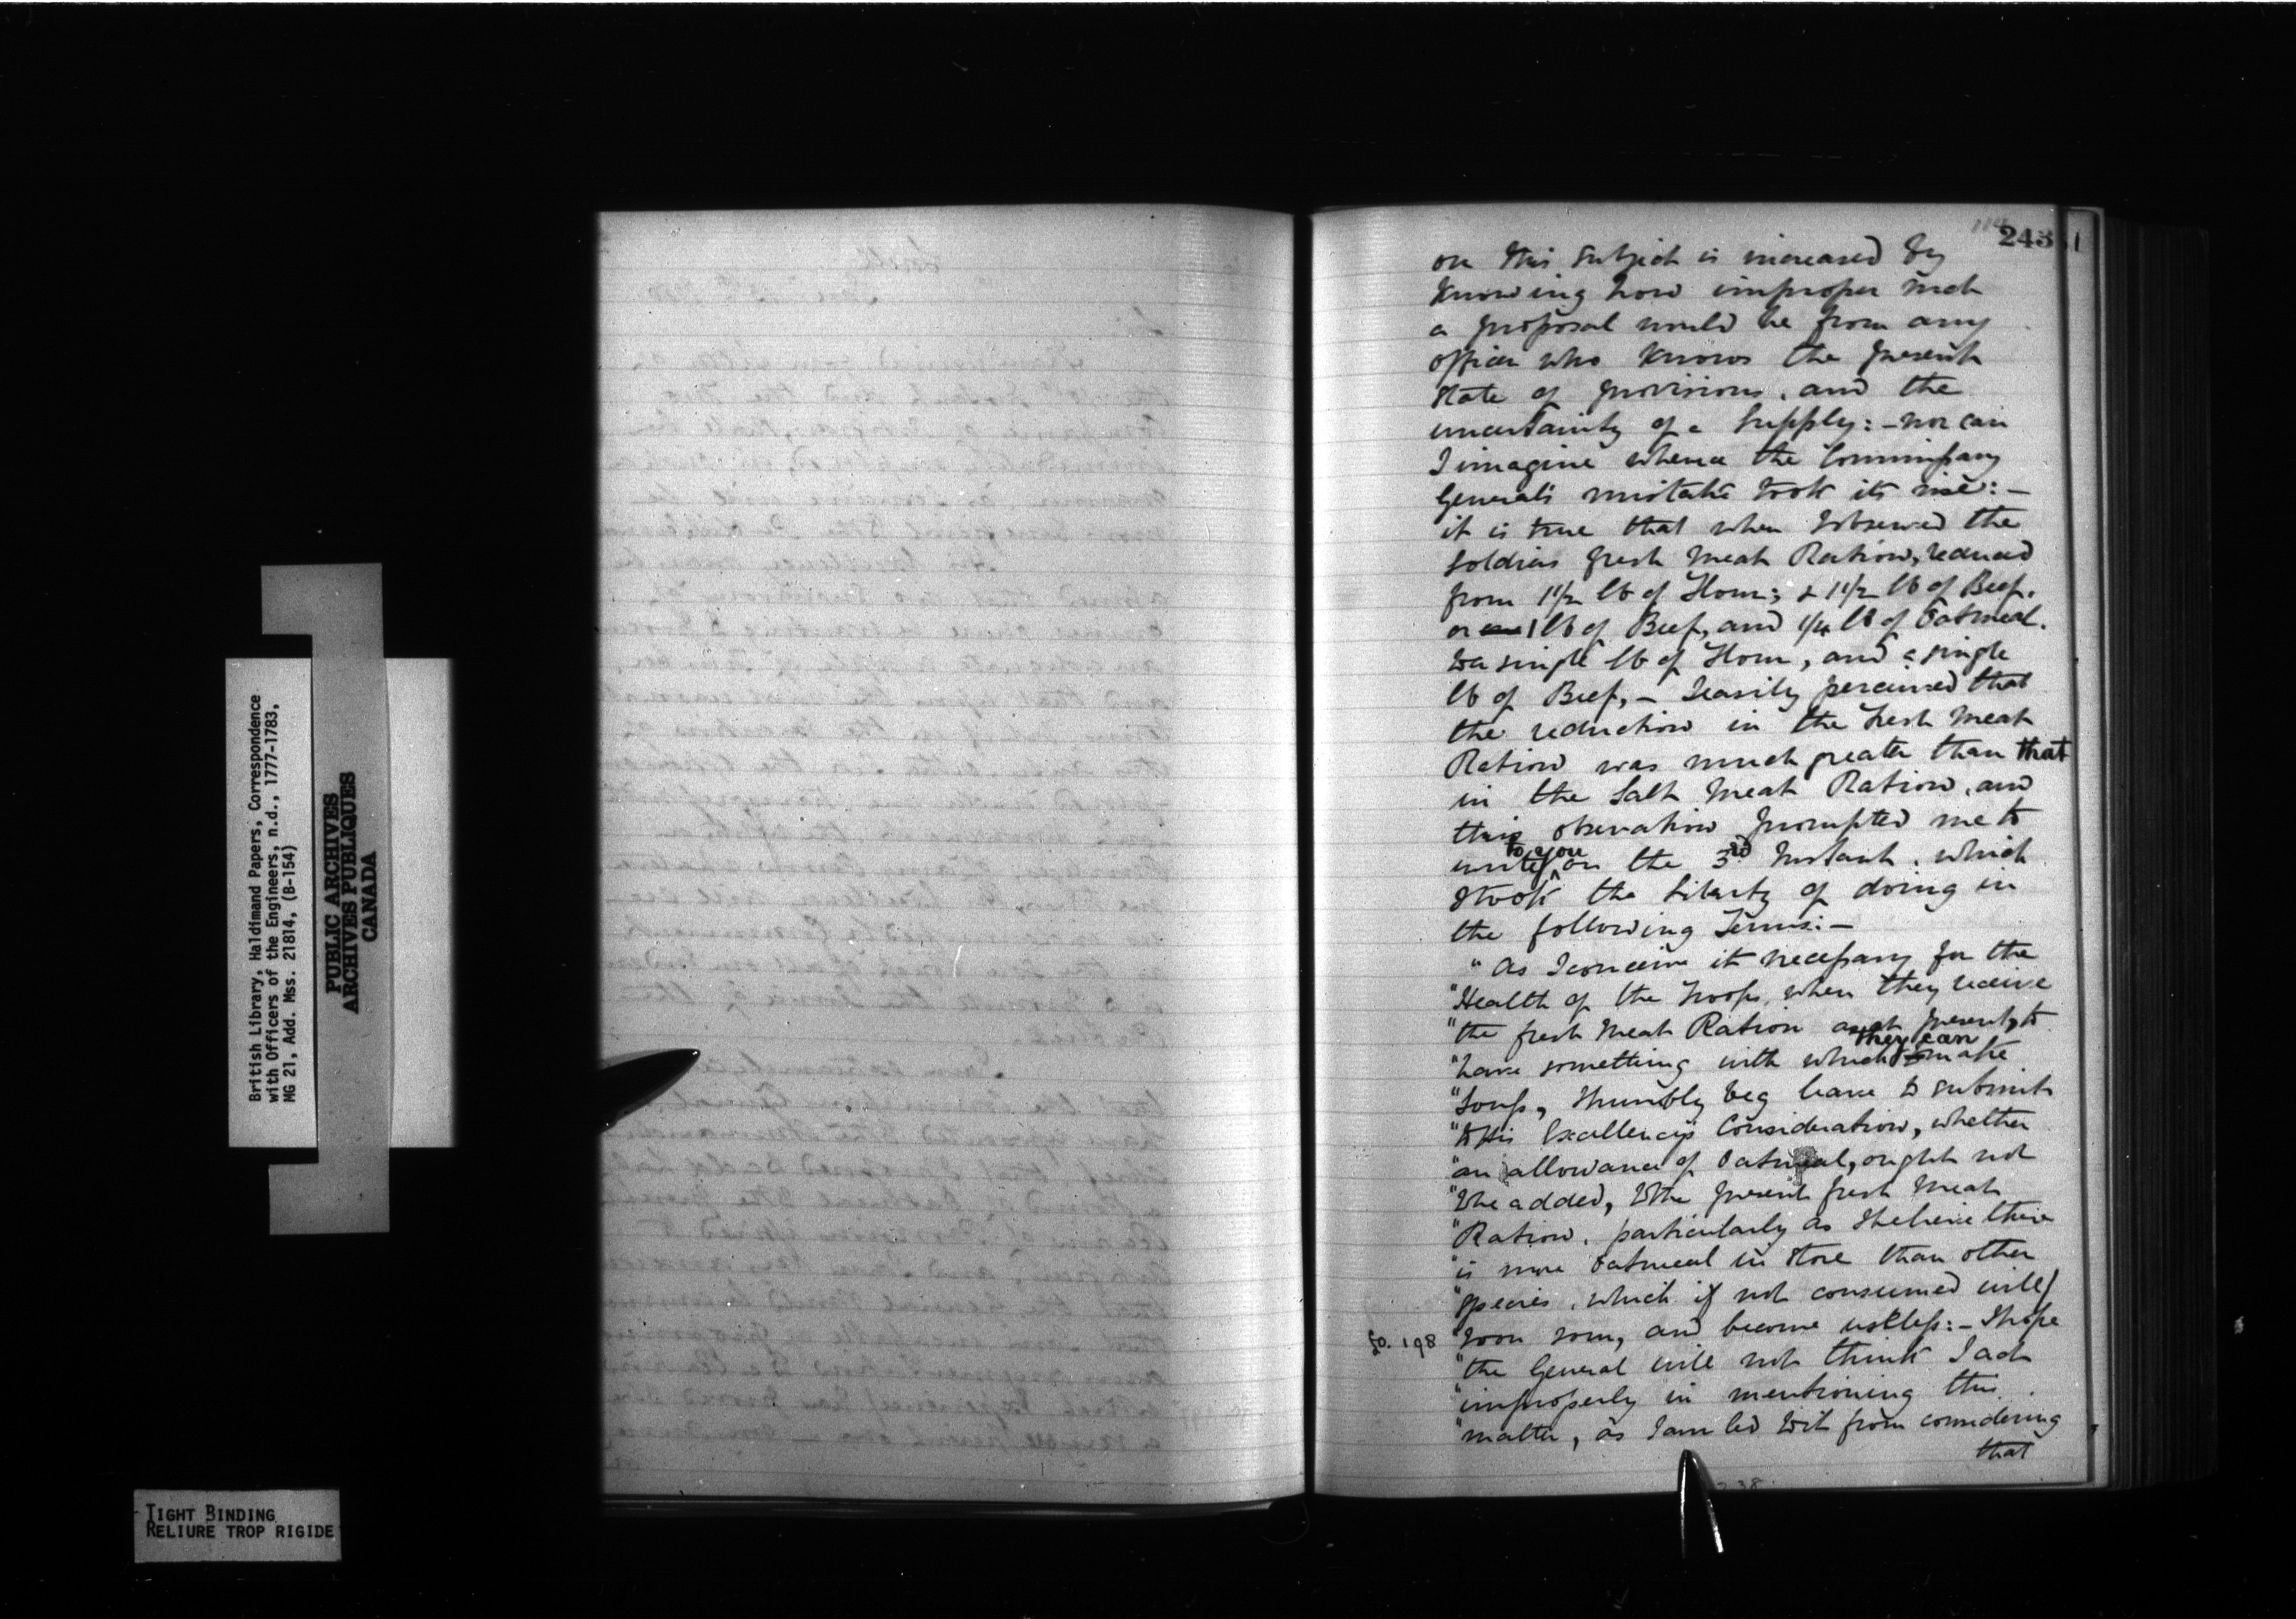 243
on this subject is increased by
knowing how improper such
a proposal would be from any
officer who knows the present
State of provisions, and the
uncertainty of a Supply:- nor can
I imagine whence the Commissary
General's mistake took its rise:-
it is true that when I observed the
soldiers fresh meat Ration, reduced
from 1 1/2 lb of Flour; & 1 1/2 lb of Beef.
or 1 lb of Beef, and 1/4 lb of Oatmeal.
to a single lb of Flour, and a single
lb of Beef, - I easily perceived that
the reduction in the fresh meat
Ration was much greater than that
in the Salt meat Ration, and
this observation prompted me to
write to you on the 3rd Instant, which
I took the liberty of doing in
the following Terms:-
"As I conceive it necessary for the
"Health of the Troops, when they receive
"the fresh meat Ration as at present, to
"have something with which they can make
"Soup, I humbly beg leave to submit
"to His Excellency's Consideration, whether
"an allowance of Oatmeal, ought not
"to be added, to the present fresh meat
"Ration, particularly as I believe there
"is more Oatmeal in Store than other
"species, which if not consumed will
fo. 198 "soon sour, and become useless:- I hope
"the General will not think I act
"improperly in mentioning this
"matter, as I am led to it from considering
that
British Library, Haldimand Papers, Correspondence
with Officers of the Engineers, n.d., 1777-1783,
MG 21, Add. Mss. 21814, (B-154)
PUBLIC ARCHIVES
ARCHIVES PUBLIQUES
CANADA
TIGHT BINDING
RELIURE TROP RIGIDE